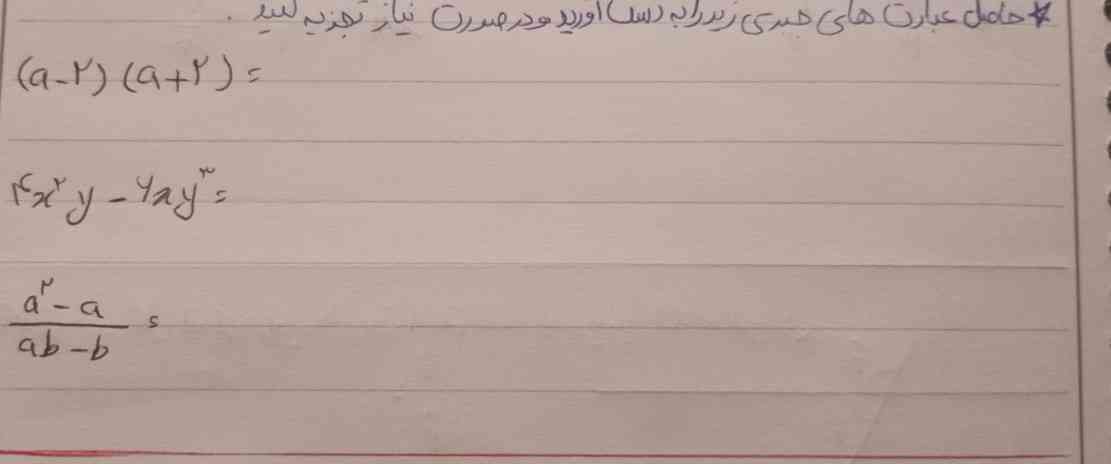 * حاصل عبارت های جبری زیر را به دست آورید و در صورت نیاز تجزیه کنید .
(a-۲) (a+۲) =
۴x²y - ۶xy³ =
a² - a
ab - b =